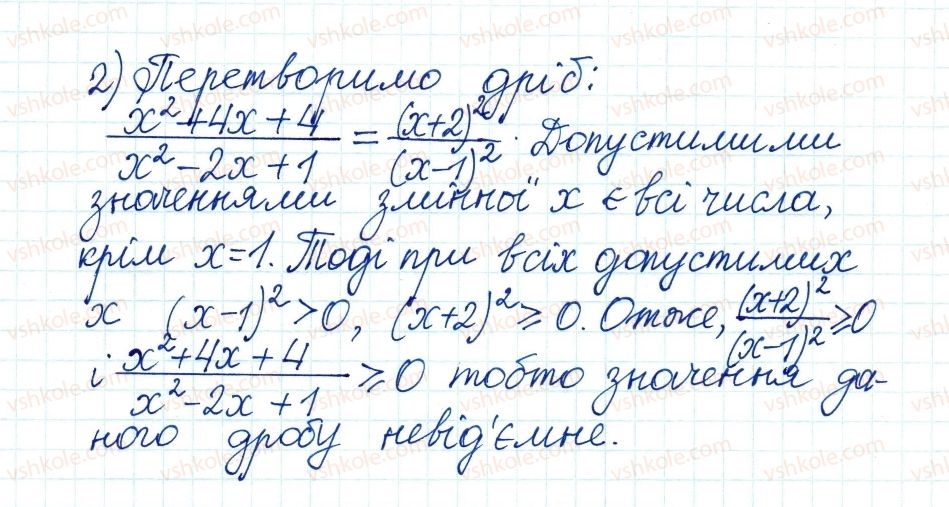 2) Перетворимо дріб:
(x²+4x+4)/(x²-2x+1) = (x+2)²/(x-1)². Допустимими
значеннями змінної x є всі числа,
крім x=1. Тоді при всіх допустимих
x (x-1)²>0, (x+2)²≥0. Отже, (x+2)²/(x-1)²≥0
і (x²+4x+4)/(x²-2x+1) ≥0 тобто значення да-
ного дробу невід'ємне.